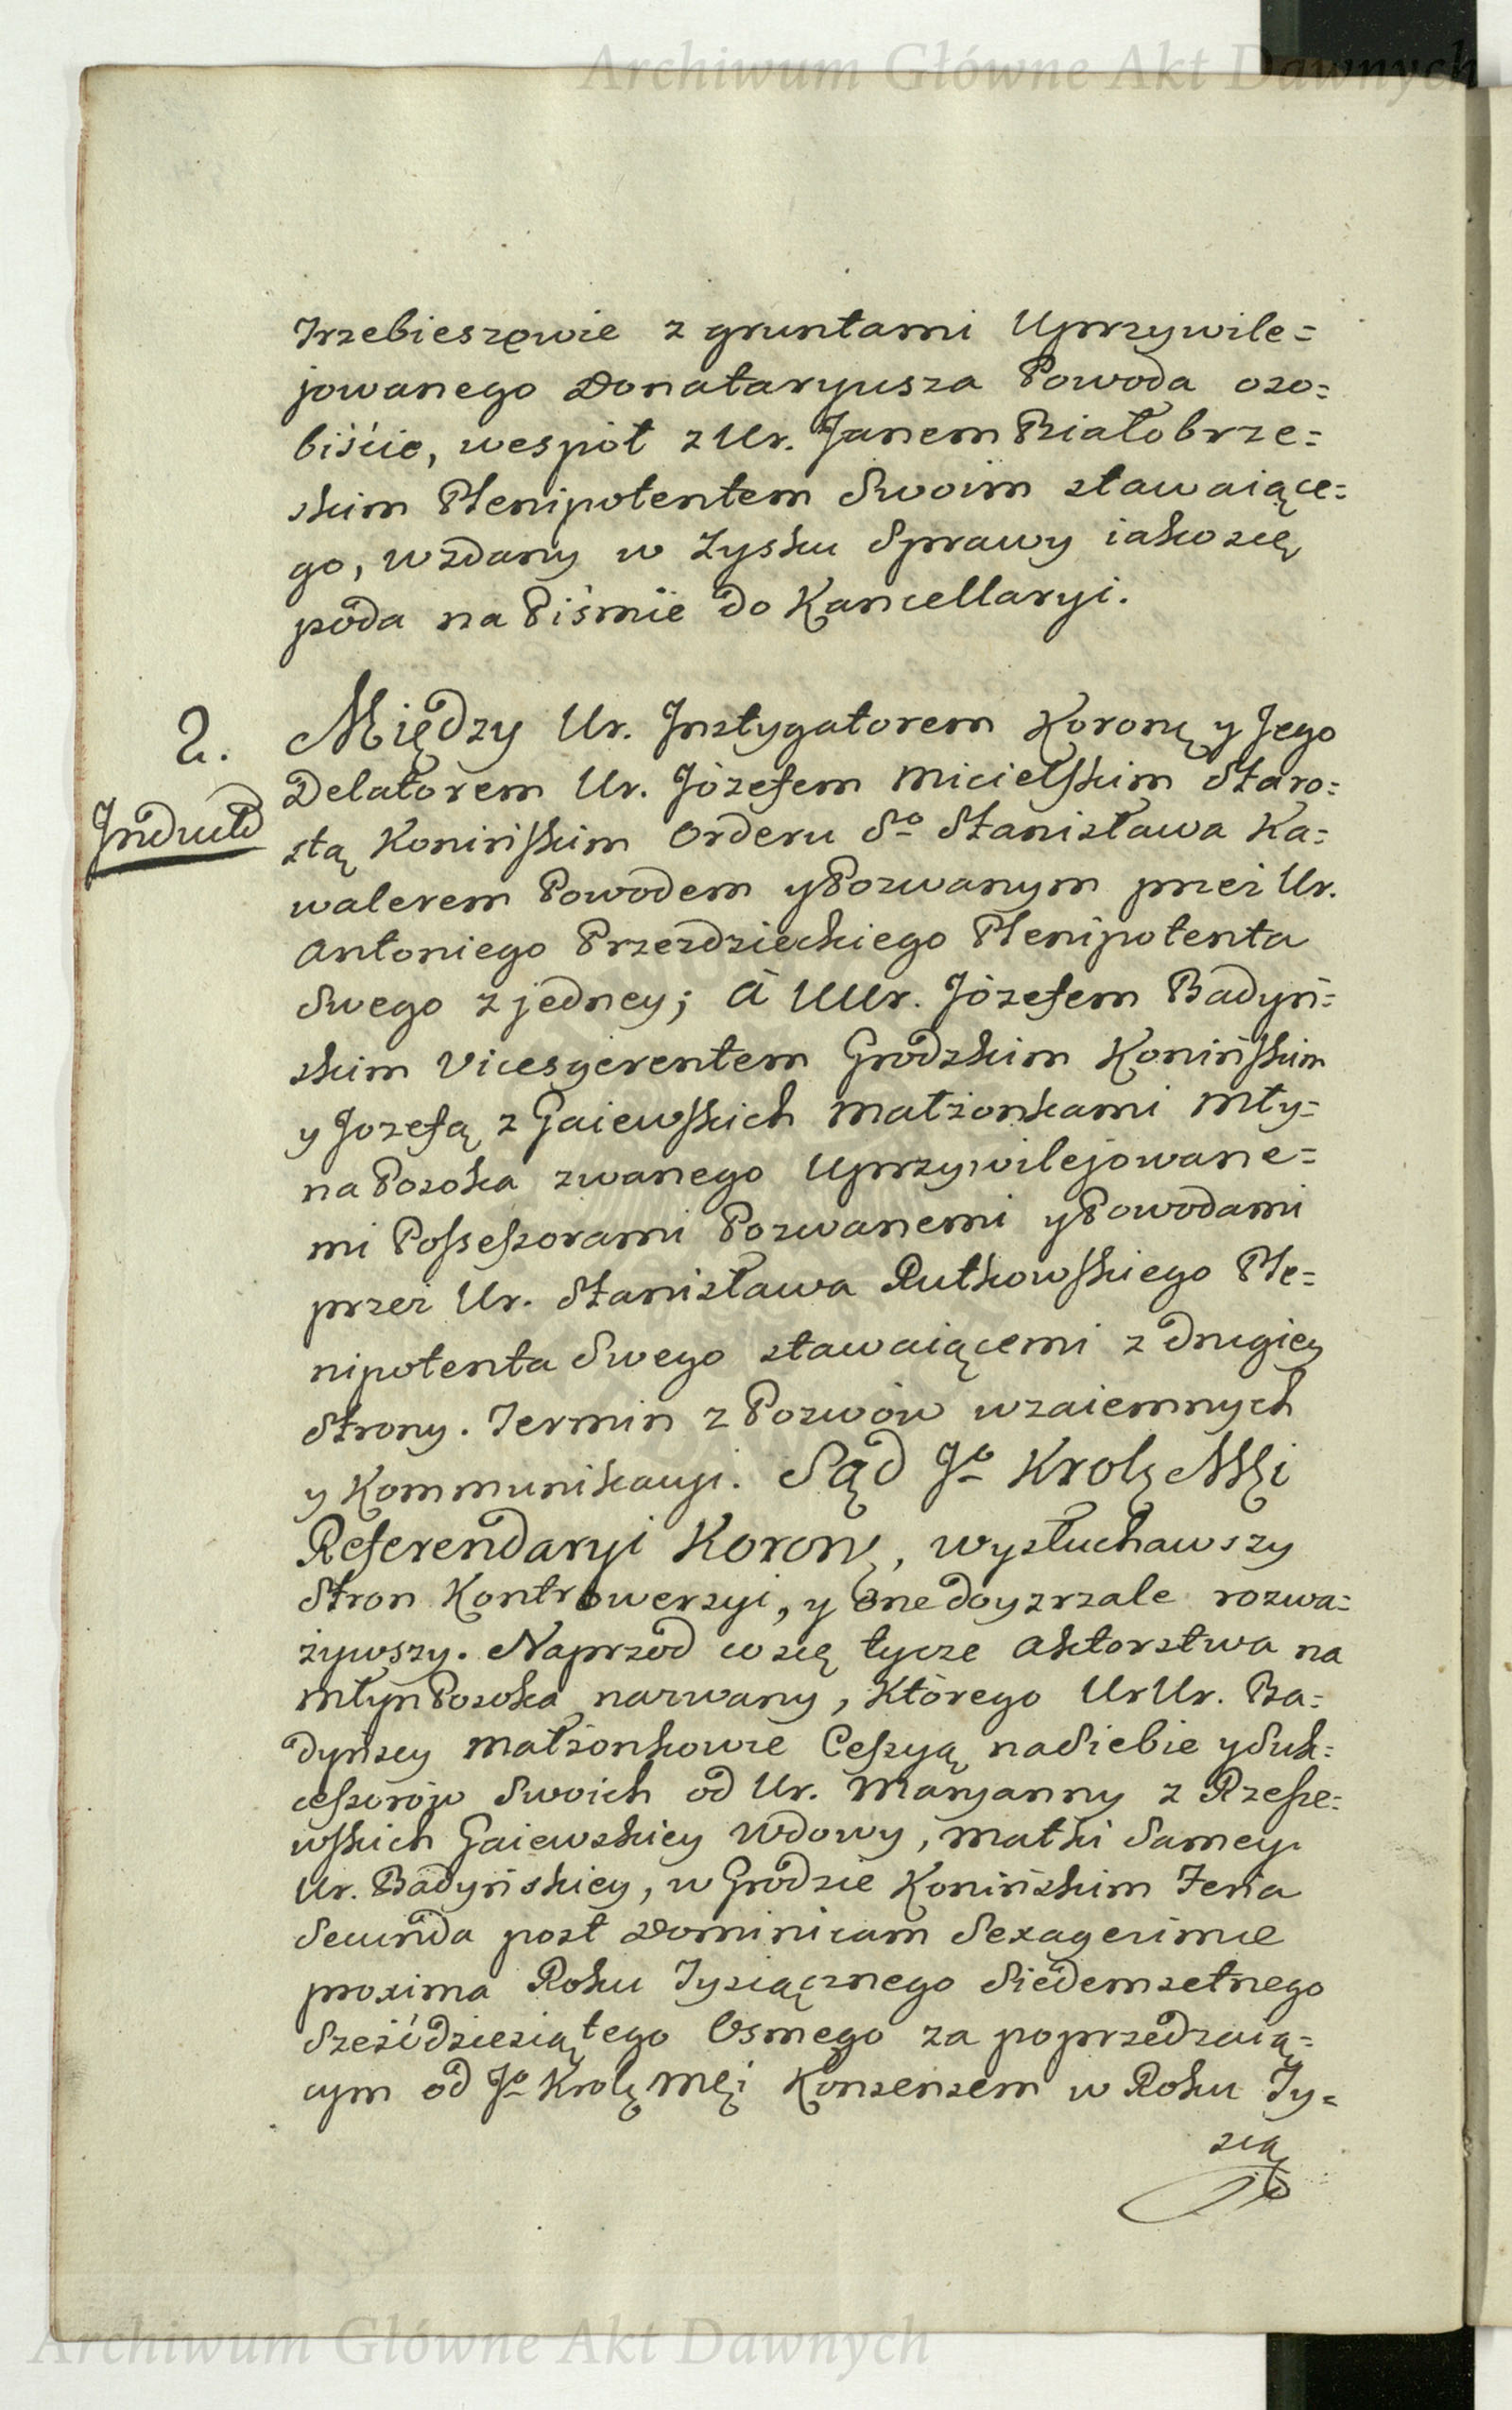 Archiwum Główne Akt Dawnych
Trzebieszowie z gruntami Uprzywile=
jowanego Donataryusza Powoda oso=
biście, wespół z Ur. Janem Białobrze=
skim Plenipotentem Swoim stawaiące=
go, wzdany w Zysku Sprawy iako się
poda na Piśmie do Kancellaryi.
2.
Induld
Między Ur. Instygatorem Koronę y Jego
Delatorem Ur. Józefem Micielskim Staro=
stą Konińskim Orderu So Stanisława Ka=
walerem Powodem y Pozwanym przez Ur.
Antoniego Przezdzieckiego Plenipotenta
Swego z jedney; à UUr. Józefem Badyń=
skim Vicesgerentem Grodzkim Konińskim
y Jozefą z Gaiewskich Małżonkami Mły=
na Posoka zwanego Uprzywilejowane=
mi Possessorami Pozwanemi y Powodami
przez Ur. Stanisława Rutkowskiego Ple=
nipotenta Swego stawaiącemi z drugiey
Strony. Termin z Pozwów wzaiemnych
y Kommunikacyi. Sąd Jo Krolę Mći
Referendaryi Koronę, wysłuchawszy
Stron Kontrowersyi, y one doyzrzale rozwa=
żywszy. Naprzod co się tycze Aktorstwa na
Młyn Posoka nazwany, którego UrUr. Ba=
dyńscy Małżonkowie Cessyą na Siebie y Suk=
cessorów Swoich od Ur. Maryanny z Rzesze=
wskich Gaiewskiey Wdowy, Matki Samey
Ur. Badyńskiey, w Grodzie Konińskim Feria
Secunda post Dominicam Sexagesimæ
proxima Roku Tysiącznego Siedemsetnego
Sześćdziesiątego Osmego za poprzedzaią=
cym od Jo Krolę Mći Konsensem w Roku Ty=
sią
Archiwum Główne Akt Dawnych